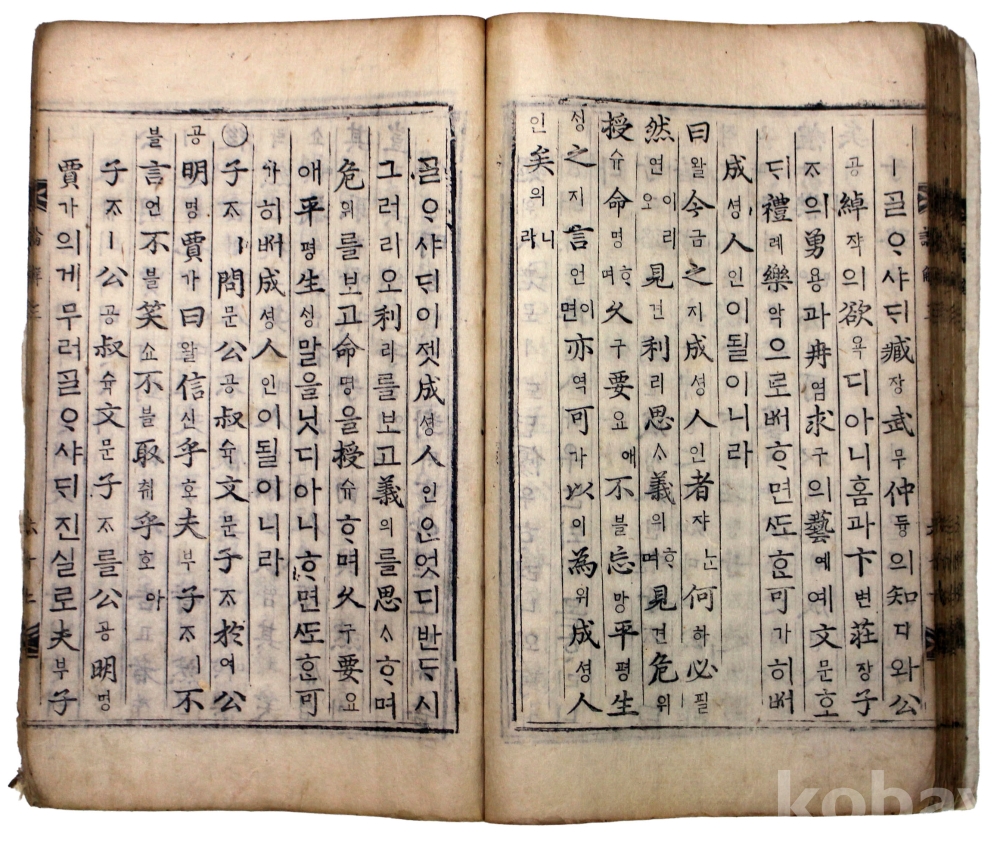 ㅣᄀᆞᆯᄋᆞ샤ᄃᆡ臧장武무仲듕의知디와公
공綽쟉의欲욕디아니홈과卞변莊장子
ᄌᆞ의勇용과冉염求구의藝예예文문호
ᄃᆡ禮례樂악으로ᄡᅥᄒᆞ면ᄯᅩᄒᆞᆫ可가히ᄡᅥ
成셩人인이될이니라
曰왈今금之지成셩人인者쟈ᄂᆞᆫ何하必필
然연이리오見견利리思ᄉᆞ義의ᄒᆞ며見견危위
授슈命명ᄒᆞ며久구要요애不블忘망平평生
ᄉᆡᆼ之지言언이면亦역可가以이為위成셩人
인矣의니라
ᄀᆞᆯᄋᆞ샤ᄃᆡ이젯成셩人인ᄋᆞᆫ엇디반ᄃᆞ시
그러리오利리를보고義의를思ᄉᆞᄒᆞ며
危위를보고命명을授슈ᄒᆞ며久구要요
애平평生ᄉᆡᆼ말을닛디아니ᄒᆞ면ᄯᅩᄒᆞᆫ可
가히ᄡᅥ成셩人인이될이니라
子ᄌᆞㅣ問문公공叔슉文문子ᄌᆞ於어公
공明명賈가曰왈信신乎호夫부子ᄌᆞㅣ不
블言언不블笑쇼不블取취乎호아
子ᄌᆞㅣ公공叔슉文문子ᄌᆞ를公공明명
賈가의게무러ᄀᆞᆯᄋᆞ샤ᄃᆡ진실로夫부子